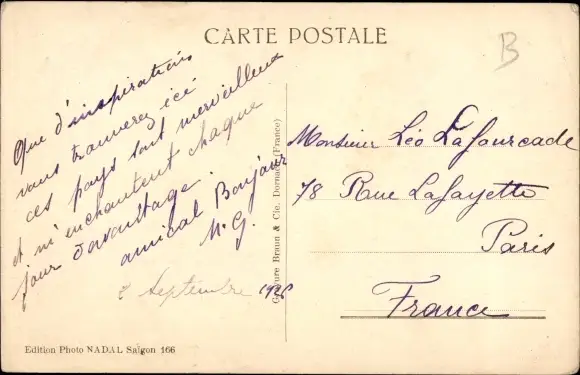 CARTE POSTALE
B
Que d'inspirations
vous trouverez ici
ces pays sont merveilleux
et m'enchantent chaque
jour davantage.
amical Bonjour
M. G.
Septembre
Monsieur Léo Lafourcade
78 Rue Lafayette
Paris
France
Gravure Braun & Cie. Dornach (France)
Edition Photo NADAL Saïgon 166